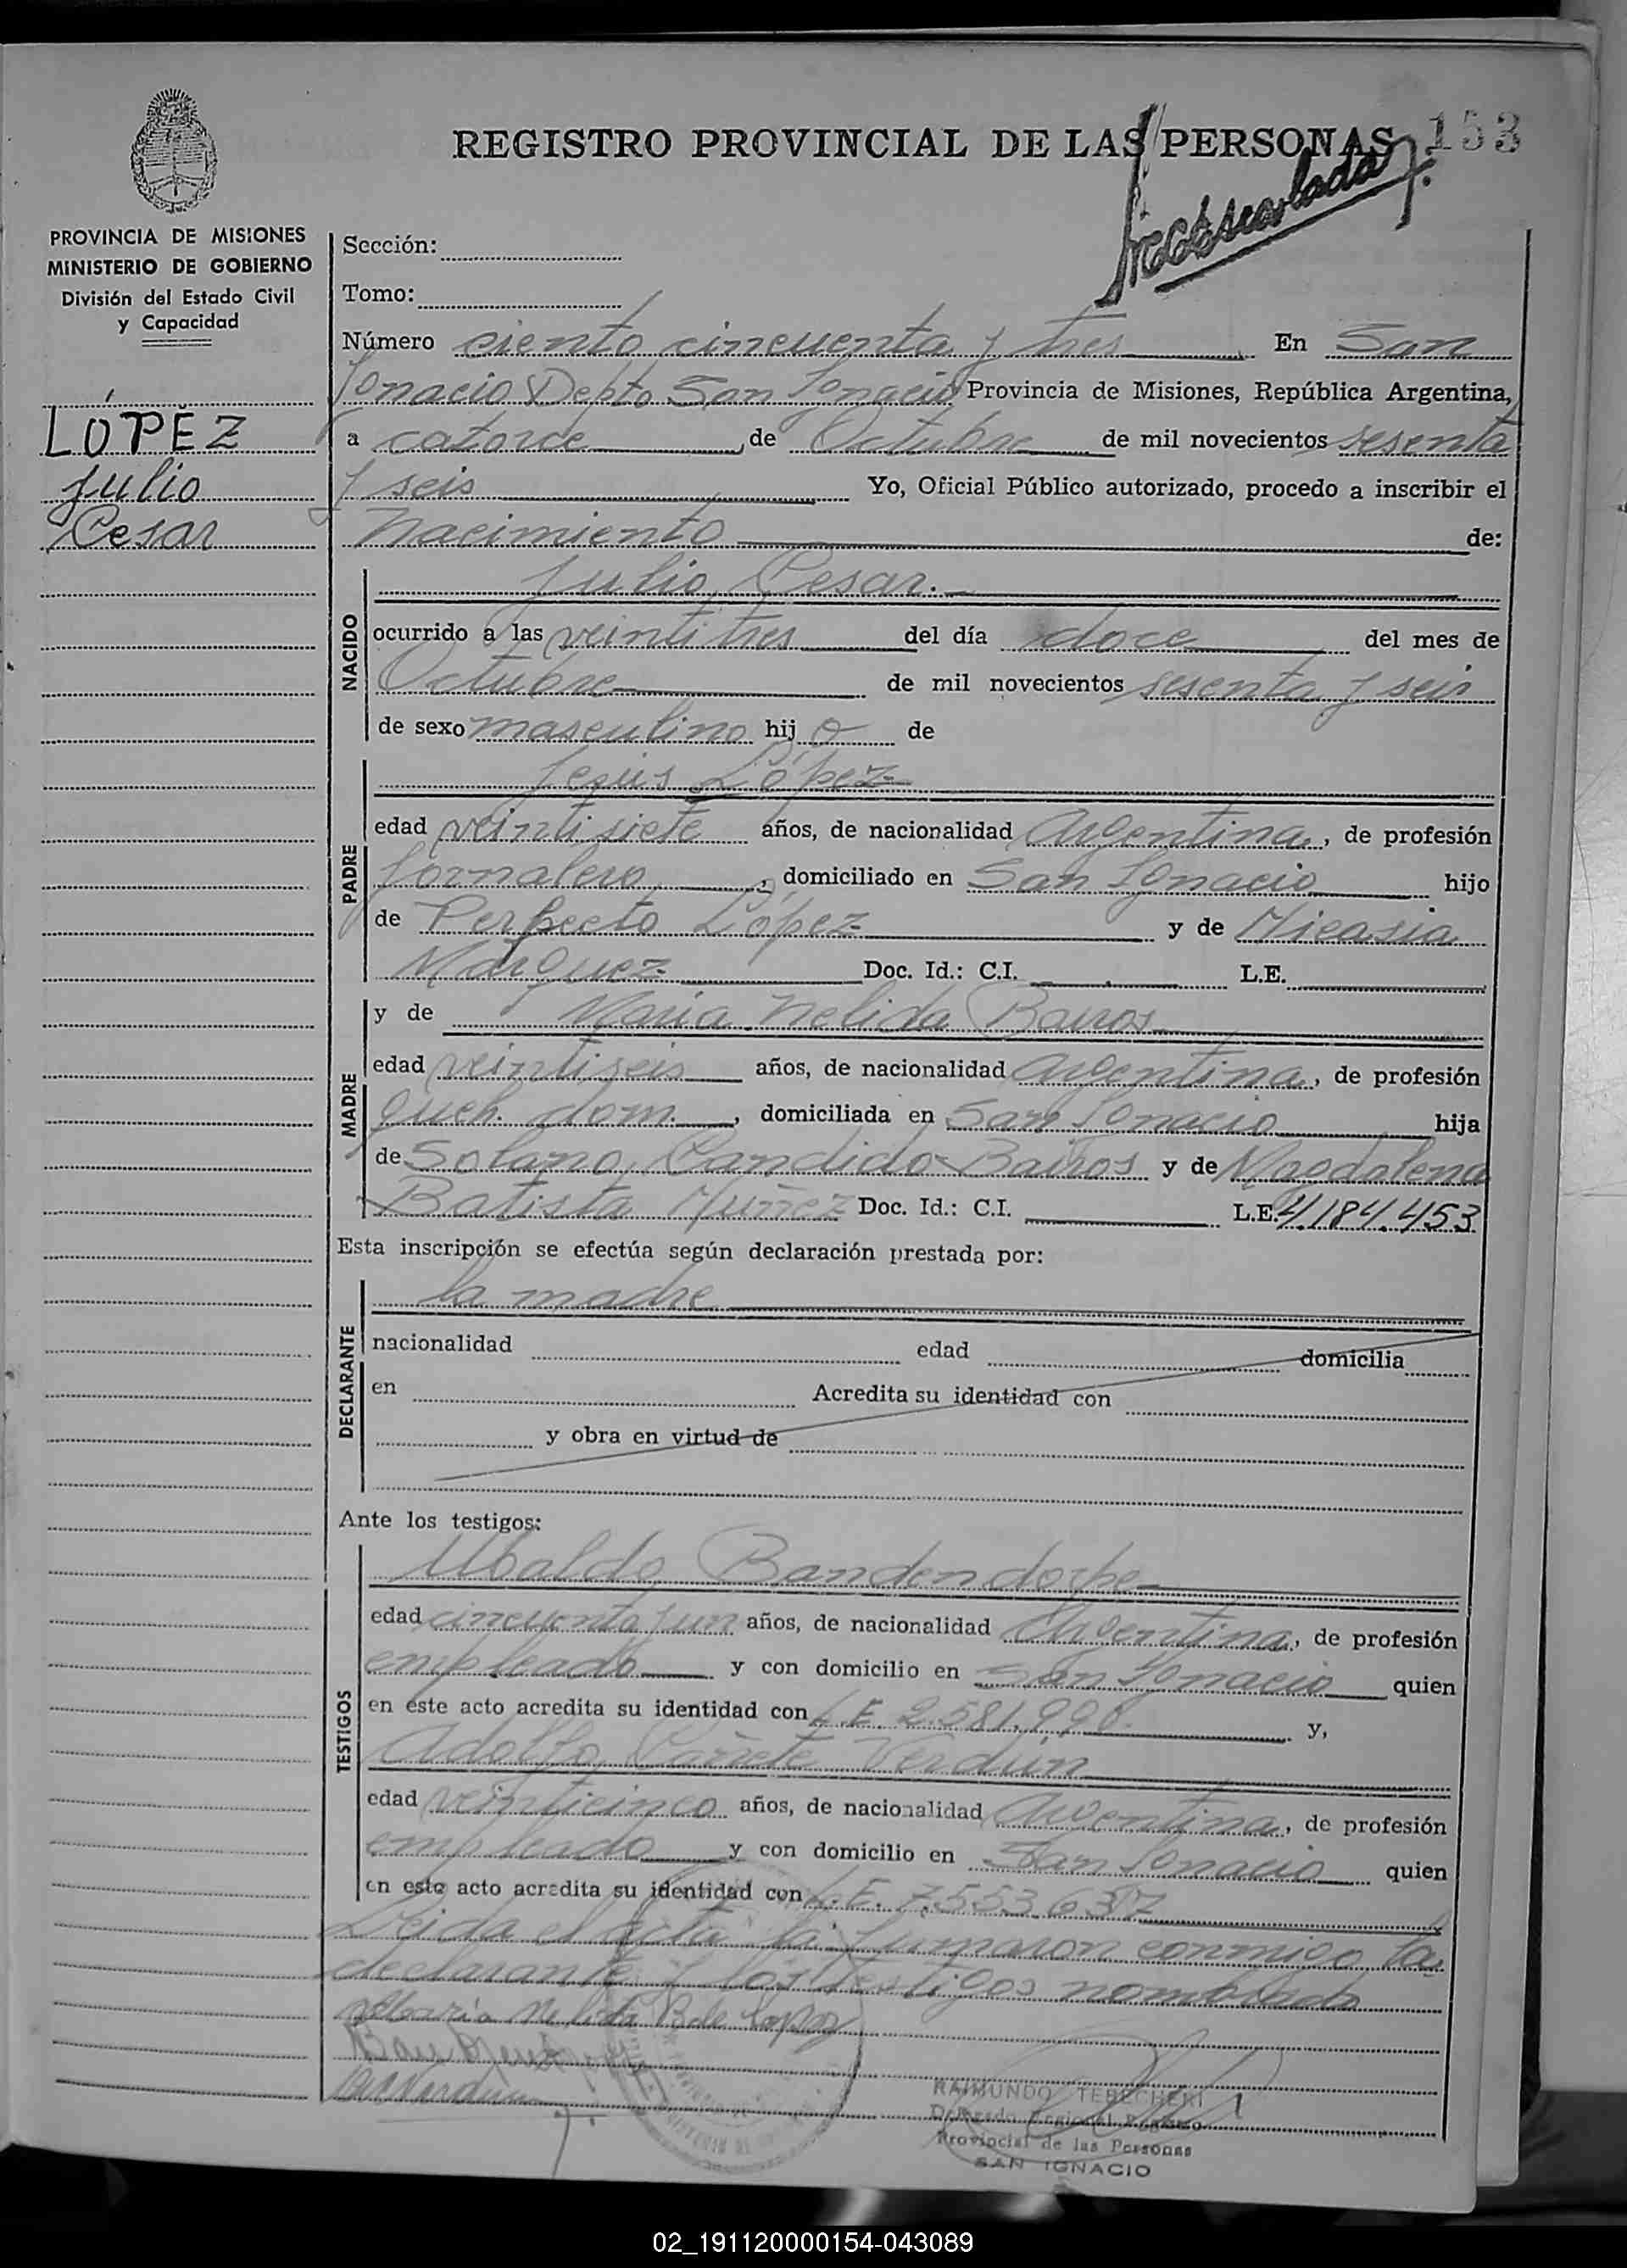 REGISTRO PROVINCIAL DE LAS PERSONAS 153
PROVINCIA DE MISIONES
MINISTERIO DE GOBIERNO
División del Estado Civil
y Capacidad
LÓPEZ
Julio
Cesar
Sección:
Tomo:
Número ciento cincuenta y tres En San
Ignacio Depto San Ignacio Provincia de Misiones, República Argentina,
a catorce de Octubre de mil novecientos sesenta
y seis Yo, Oficial Público autorizado, procedo a inscribir el
nacimiento de:
NACIDO
Julio Cesar.
ocurrido a las veintitres del día doce del mes de
Octubre de mil novecientos sesenta y seis
de sexo masculino hij o de
PADRE
Jesús López
edad veintisiete años, de nacionalidad Argentina, de profesión
Jornalero, domiciliado en San Ignacio hijo
de Perfecto López y de Nicasia
Marquez Doc. Id.: C.I. L.E.
MADRE
y de Maria Nelida Barros
edad veintiseis años, de nacionalidad Argentina, de profesión
queh. dom., domiciliada en San Ignacio hija
de Solano Candido Barros y de Magdalena
Batista Muñez Doc. Id.: C.I. L.E. 4.184.453
Esta inscripción se efectúa según declaración prestada por:
DECLARANTE
la madre
nacionalidad edad domicilia
en Acredita su identidad con
y obra en virtud de
Ante los testigos:
TESTIGOS
Ubaldo Bandendorpe
edad cincuenta y un años, de nacionalidad Argentina, de profesión
empleado y con domicilio en San Ignacio quien
en este acto acredita su identidad con L.E. 2.581.990. y,
Adolfo Cañete Verdun
edad veinticinco años, de nacionalidad Argentina, de profesión
empleado y con domicilio en San Ignacio quien
en este acto acredita su identidad con L.E. 7.553.637
Leida el acta la firmaron conmigo la
declarante y los testigos nombrado
Maria Nelida B de Lopez
RAIMUNDO TEBECHERI
Delegado Regional Registro
Provincial de las Personas
SAN IGNACIO
02_191120000154-043089